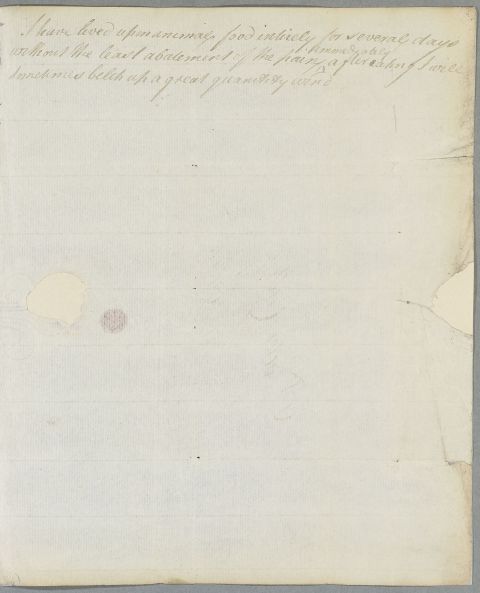 I have lived upon animal food intirely for several days
immediately
without the least abatement of the pain, after eating I will
sometimes belch up a great quantity wind